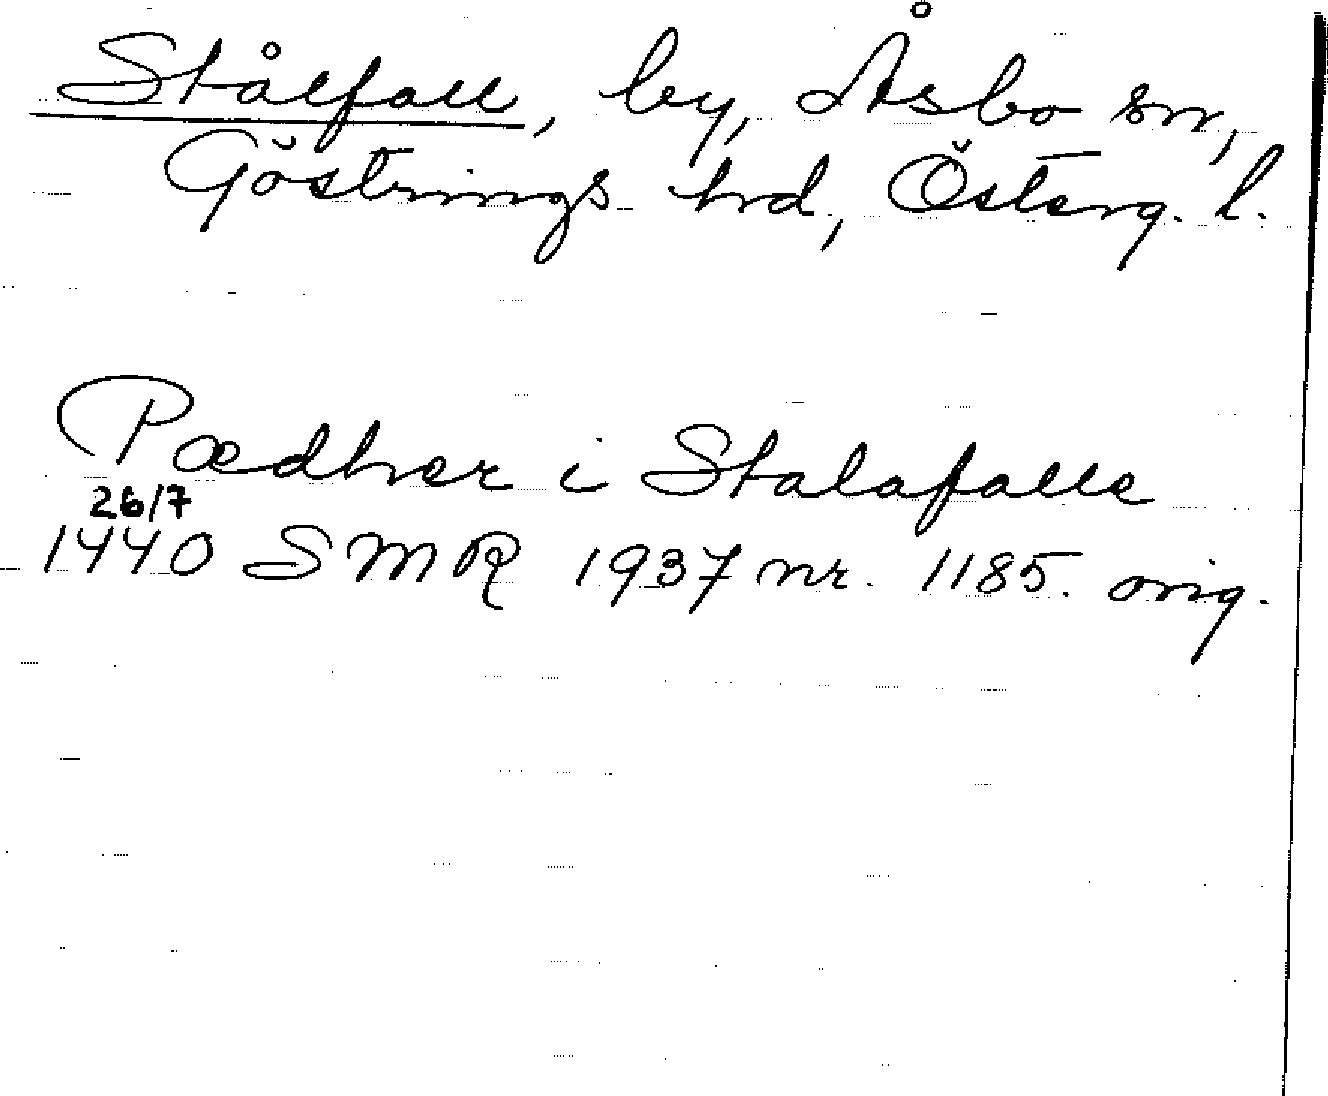 Stålfall, by, Åsbo sn,
Göstrings hrd, Österg. l.
Pædher i Stalafalle
26/7
1440 SMR 1937 nr. 1185. orig.